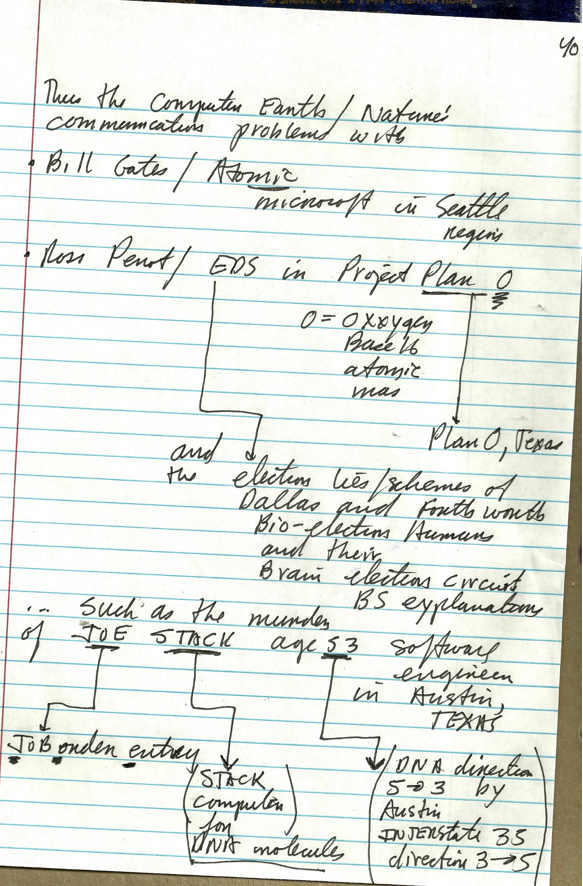 40
Thus the Computer Earth / Nature's
communication problems with
• Bill Gates / Atomic
microsoft in Seattle
region
• Ross Perot / EDS in Project Plan O
O = Oxxygen
Base 16
atomic
mas
Plan O, Texas
and
the election lies/schemes of
Dallas and Forth worth
Bio-election Humans
and their
Brain election circuits
BS explanations
... Such as the murder
of JOE STACK age 53 software
engineer
in Austin,
TEXAS
JOB order entry
(STACK
computer
for
DNA molecules)
(DNA direction
5→3 by
Austin
INTERstate 35
direction 3→5)